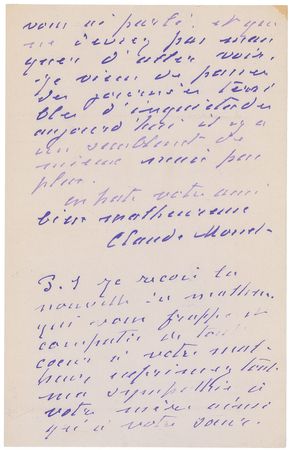 vous ai parlé et que
ne devriez pas man
quer d'aller voir.
Je viens de passer
des journées terri
bles d'inquiétudes
aujourd'hui il y a
un semblant de
mieux mais pas
plus.
en hate votre ami
bien malheureux
Claude Monet
P.S je reçois la
nouvelle du malheur
qui vous frappe et
compatis de tout
coeur à votre mal-
heur exprimez tout
ma sympathie à
votre mère ainsi
qu'à votre soeur.